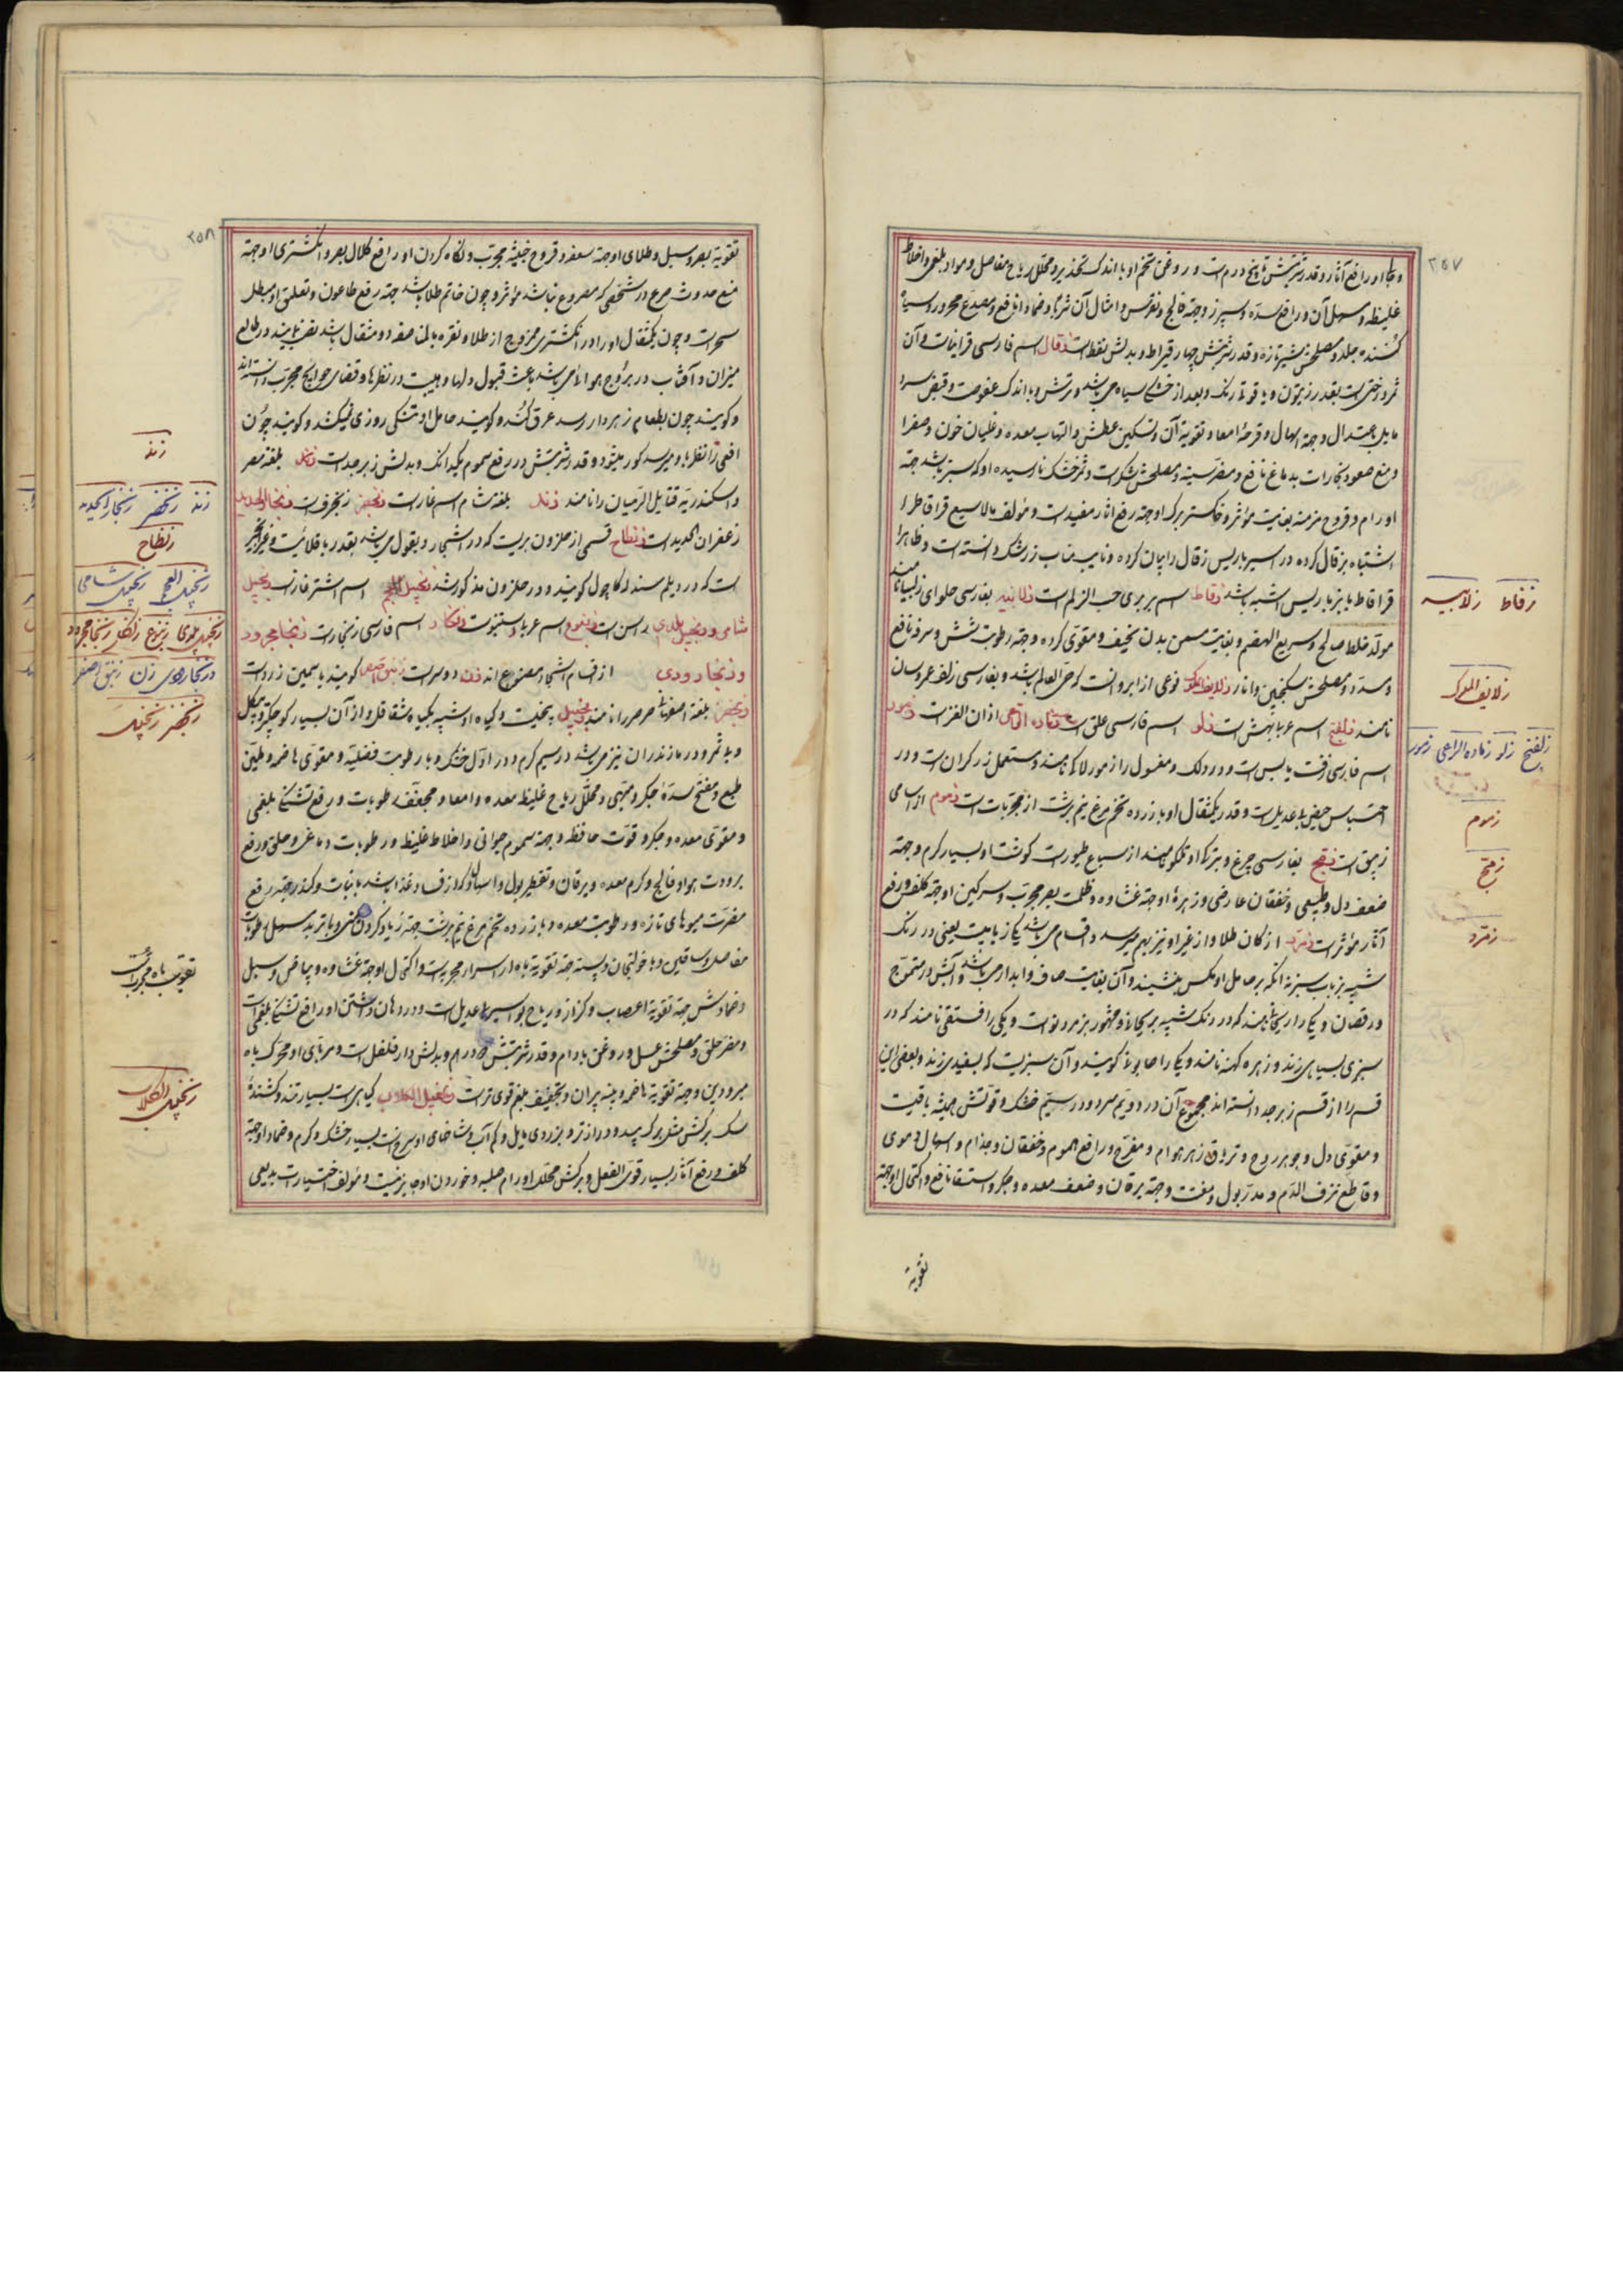 ۲۵۷
و بخار او رافع آثار و قدر شربتش تا پنج درم است و روغن تخم او با اندک تخدیر و محلل ریاح مفاصل و مواد بلغمی و اخلاط
غلیظه و مسهل آن و رافع سدّه و سپرز و جهة فالج و نقرس و امثال آن شربا و ضمادا نافع و مصدّع محرور و سیاه
کننده جلد و مصلحش شیر تازه و قدر شربتش چهار قیراط و بدلش نفط است زقال اسم فارسی قرانیا است و آن
ثمر درختیست بقدر زیتون و یاقوتی رنگ و بعد از خشکی سیاه می‌باشد و ترش و با اندک عفوصت و قبض سرد
مایل باعتدال و جهة اسهال و قرحهٔ امعا و تقویة آن و تسکین عطش و التهاب معده و غلیان خون و صفرا
و منع صعود بخارات بدماغ نافع و مضرّ سینه و مصلحش شکر است و ثمر خشک نارسیده او که سبز باشد جهة
اورام و قروح مزمنه بغایت مؤثر و خاکستر برک او جهة رفع آثار مفید است و مؤلف مالایسع قراقاط را
اشتباه بزقال کرده در امیرباریس زقال را بیان کرده و نایب مناب زرشک دانسته است و ظاهرا
قراقاط با نبرباریس اشبه باشد زقاط اسم بربری حب الزلم است زلابیه بفارسی حلوای زلیبیا نامند
مولّد خلط صالح و سریع الهضم و بغایت مسمن بدن نحیف و مقوی کرده و جهة رطوبت شش و سرفه نافع
و مسدّد و مصلحش سکنجبین و انار زلایف الملوک نوعی از ابرو است که حی العالم باشد و بفارسی زلف عروسان
نامند زلفتج اسم عربا بهش است زلو اسم فارسی علق است زماده الراعی اذان العنز است زمور
اسم فارسی زفت یابس است و در دلک و مغسول را زمور لاک نامند و مستعمل زرکران است و در
احتباس حیض بی‌عدیلست و قدر یکمثقال او با زرده تخم مرغ نیم‌برشت از مجربات است زموم از اسامی
زیبق است زمج بفارسی چرغ و بترکی اوتلکو نامند از سباع طیور است کوشت او بسیار کرم و جهة
ضعف دل و طبیعی و خفقان عارضی و زهرهٔ او جهة غشاوه و ظلمت بصر مجرّب و سرکین او جهة کلف و رفع
آثار مؤثر است زمرد از کان طلا و از غیر او نیز بهم میرسد و اقسام می‌باشد یکی ذبابیست یعنی در رنک
شبیه بذباب سبز نه آنکه بر حامل او مکس ننشیند و آن بغایت صاف و آبدار می‌باشد و آبش در تموّج
و رقصان و یکی را ریحانی نامند که در رنک شبیه ببرک ریحان و مشهور بزمرد نو است و یکی را فستقی نامند که در
سبزی بسیاهی زند و زهره کهنه نامند و یکی را صابونی کویند و آن سبزیست که بسفیدی زند و بعضی این
قسم را از قسم زبرجد دانسته‌اند مجموع آن در دویم سرد و در سیّم خشک و قوتش همیشه باقیست
و مقوّی دل و جوهر روح و تریاق زهر هوام و مفرّح و رافع هموم و خفقان و جذام و اسهال دموی
و قاطع نزف الدّم و مدرّ بول و مفتت و جهة یرقان و ضعف معده و جکر و استسقا نافع و اکتحال او جهة
تقویة
زقاط زلابیه
زلایف الملوک
زلفتج زلو زماده الراعی زمور
زموم
زمج
زمرد
۲۵۸
تقویة بصر و سبل و طلای او جهة سعفه و قروح خبیثه مجرّب و نکاه کردن او رافع کلال بصر و انکشتری او جهة
منع حدوث صرع در شخصی که مصروع نباشد مؤثر و چون خاتم طلا باشد جهة رفع طاعون و تعلیق او مبطل
سحر است و چون یکمثقال او را در انکشتری ممزوج از طلا و نقره بالمناصفه دو مثقال باشد نصب نمایند در طالع
میزان و آفتاب در بروج هوائی باشد باعث قبول دلها و هیبت در نظرها و قضای حوایج مجرّب دانسته‌اند
و کویند چون بطعام زهردار رسد عرق کند و کویند حامل او تنکی روزی نمیکشد و کویند چون
افعی را نظر باو رسد کور میشود و قدر شربتش در رفع سموم یکدانک و بدلش زبرجد است زند بلغه مصر
و اسکندریّه قتایل الرّهبان را نامند زند بلغه شام اسم غار است زنجفر زنجفرف است زنجار الحدید
زعفران الحدید است زنطاح قسمی از حلزون بریست که در اشجار و بقول می‌باشد بقدر باقلائیست و غیر آنچیز
است که در دیلم سند راکاچول کویند و در حلزون مذکور شد زنجبیل العجم اسم اشترغاز است زنجبیل
شامی و زنجبیل بلدی راسن است زنبوع اسم عربا دستنبو است زنکار اسم فارسی زنجار است زنجار مجرود
و زنجار دودی از اقسام اشجار مصنوع‌اند زن دوسر است زنبق اصفر کویند یاسمین زرد است
زنجفر بلغة اصفهان صرصر را نامند زنجبیل بیخیست و کیاه او شبیه بکیاه شقاقل و از آن بسیار کوچکتر و بی‌کل
و بی‌ثمر و در مازندران نیز می‌باشد در سیم کرم و در اوّل خشک و با رطوبت فضلیّه و مقوی هاضمه و ملیّن
طبع و مفتح سدّهٔ جکر و مشهی و محلّل ریاح غلیظ معده و امعا و مجفّف رطوبات و رافع تشنّج بلغمی
و مقوی معده و جکر و قوّت حافظه و جهة سموم حیوانی و اخلاط غلیظه و رطوبات دماغی و حلق و رفع
برودت هوا و فالج و کرم معده و یرقان و تقطیر بول و اسهال که از فساد غذا باشد با نبات و کندر جهة رفع
مضرّت میوهای تازه و رطوبت معده و با زرده تخم مرغ نیم‌برشت جهة زیاد کردن منی و با تربد مسهل رطوبات
مفاصل و ساقین و با خولنجان و پسته جهة تقویة باه از اسرار مجربیست و اکتحال او جهة غشاوه و بیاض و سبل
و ضمادش جهة تقویة اعصاب و کزاز و ریاح بواسیر بی‌عدیل است و در دهان داشتن او رافع تشنج بلغمی است
و مضرّ حلق و مصلحش عسل و روغن بادام و قدر شربتش دو درهم و بدلش دارفلفل است و مربّای او محرّک باه
مبرودین و جهة تقویة هاضمه پیران و تجفیف بلغم قوی‌تر است زنجبیل الکلاب کیاهیست بسیار تند و کشندهٔ
سک برکش مثل برک بید و درازتر و بزردی مایل و کم آب و شاخهای او سرخ است بسیار خشک و کرم و ضماد او جهة
کلف و رفع آثار بسیار قوی الفعل و برکش محلّل اورام صلبه و خوردن او جایز نیست و مؤلف اختیارات بدیعی
زند
زند زنجفر زنجار الحدید
زنطاح
زنجبیل العجم زنجبیل شامی
زنجبیل بلدی زنبوع زنکار زنجار مجرود
و زنجار دودی زن زنبق اصفر
زنجفر زنجبیل
تقویت باه مجربست
زنجبیل الکلاب